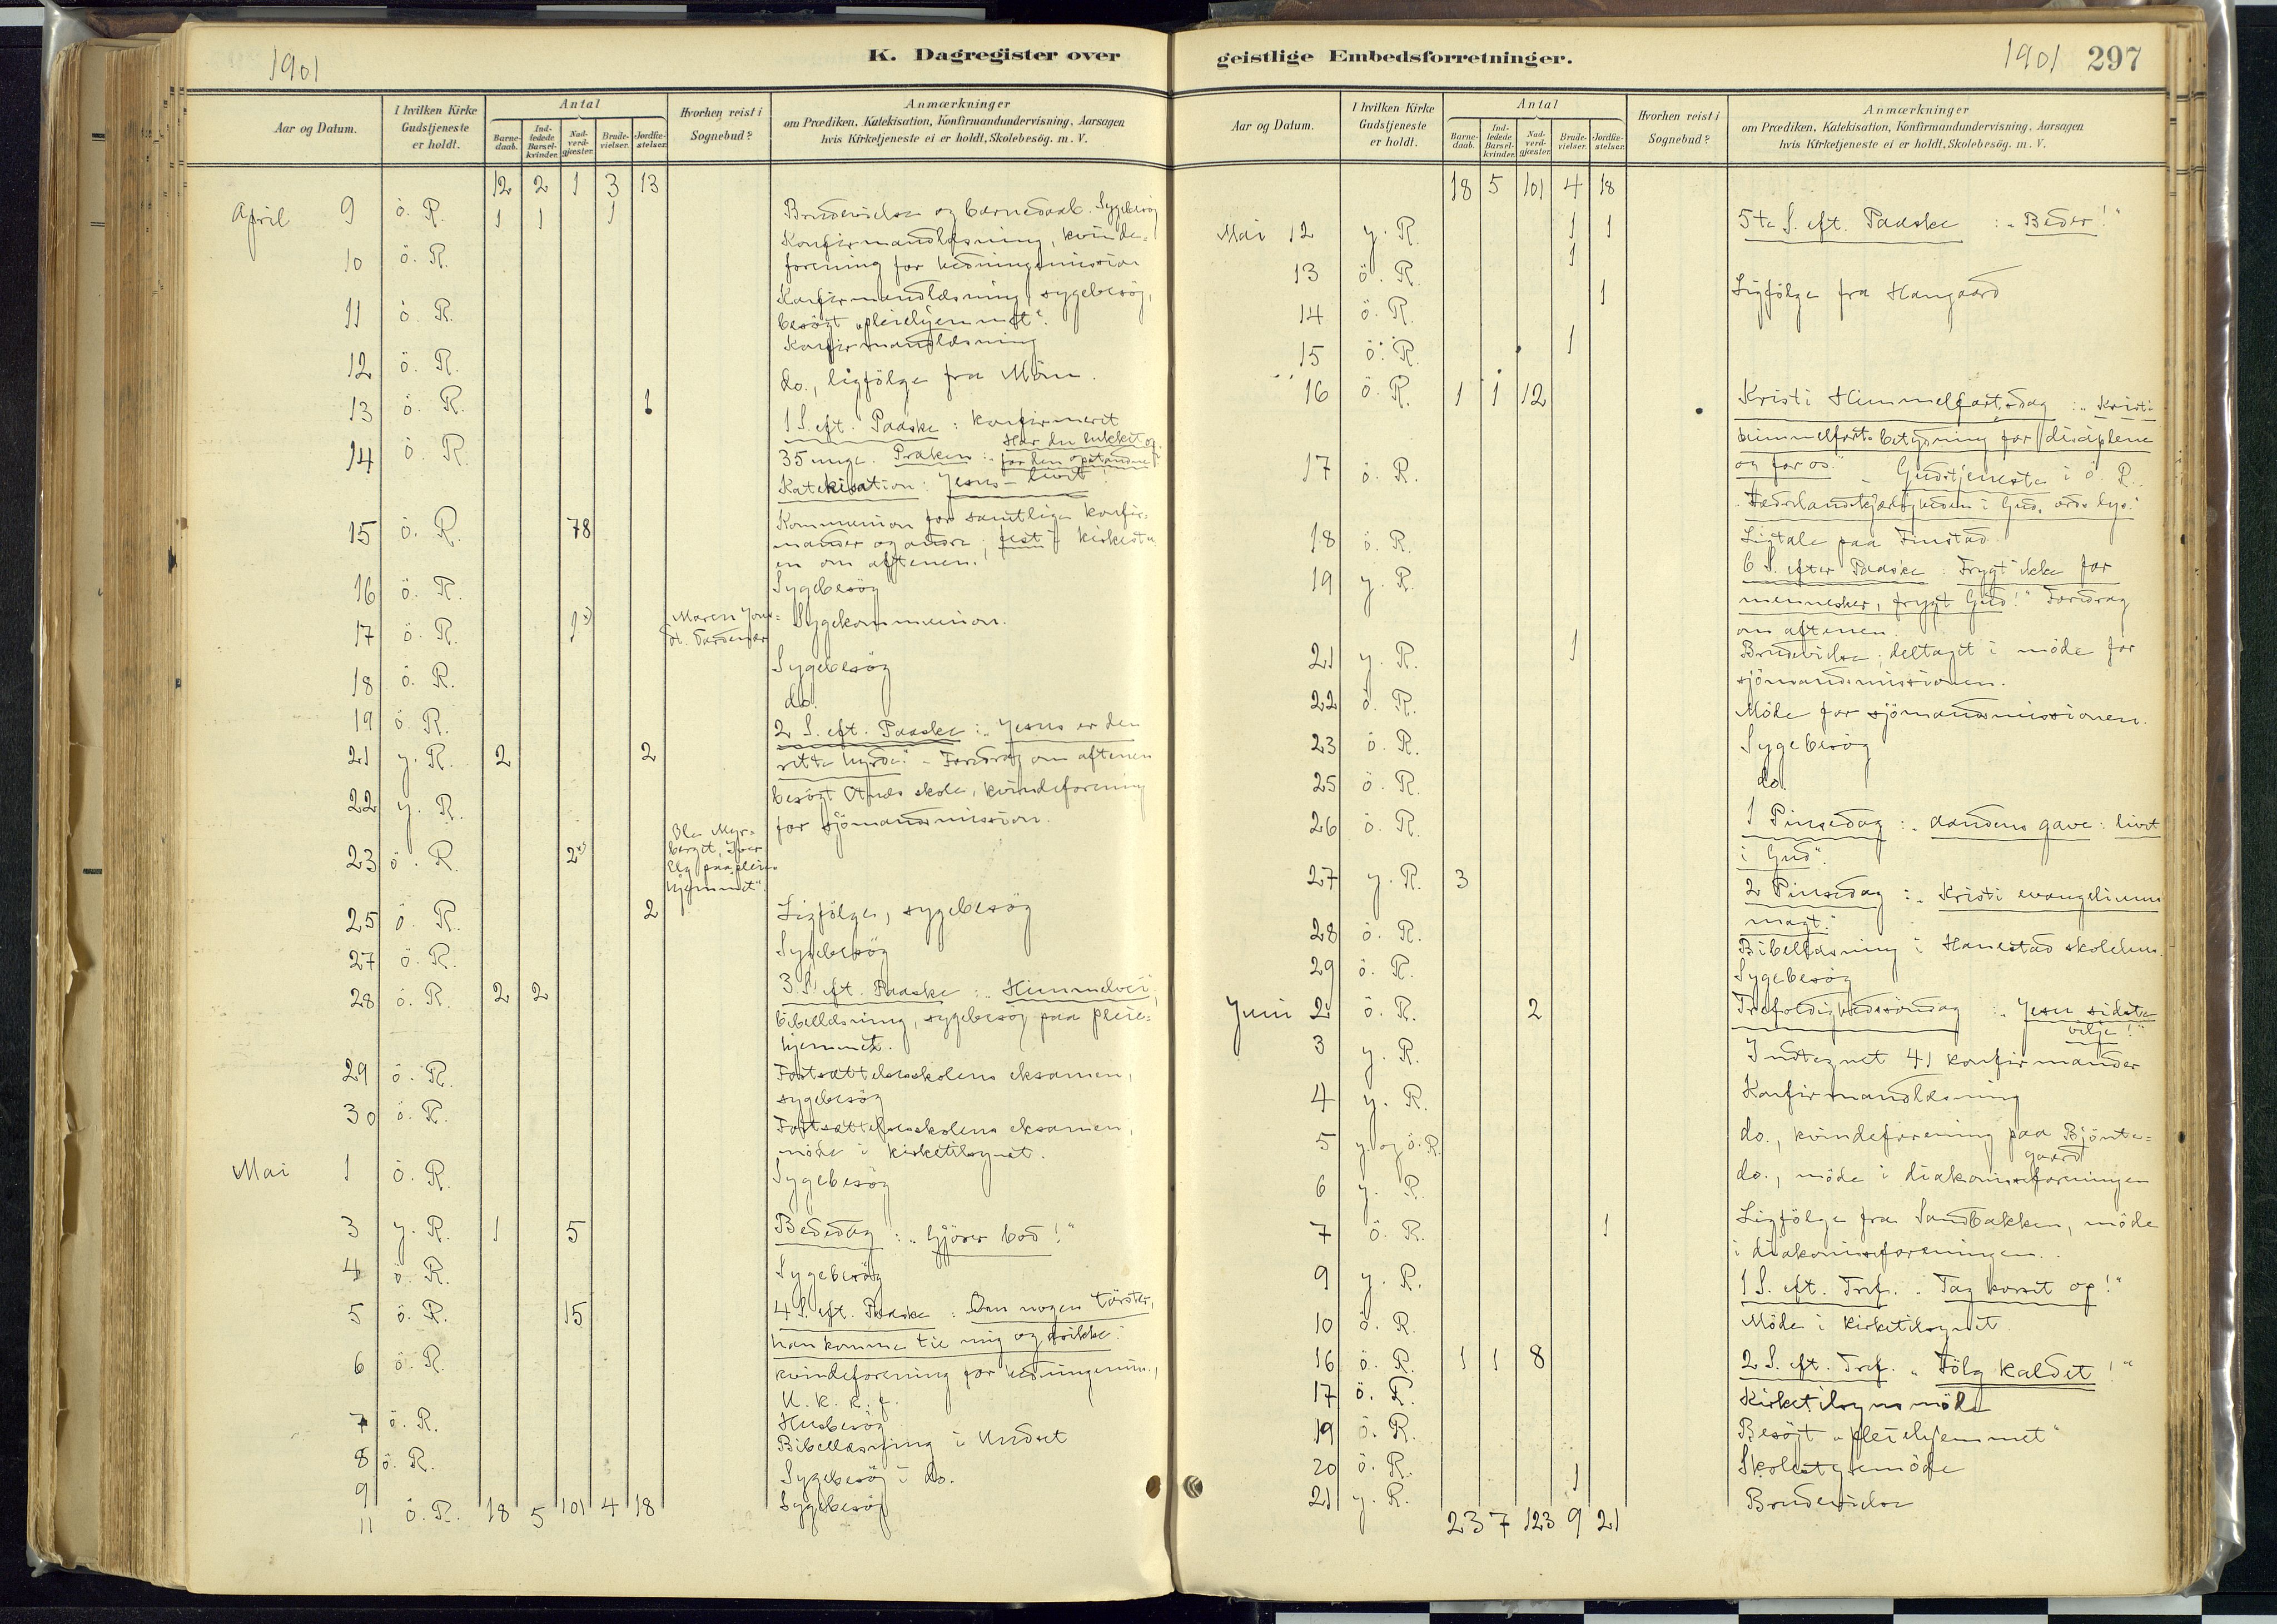 1901
K. Dagregister over
Aar og Datum.
I hvilken Kirke Gudstjeneste er holdt.
Antal
Barnedaab.
Indledede Barselkvinder.
Nadverdgjæster.
Brudevielser.
Jordfæstelser.
Hvorhen reist i Sognebud?
Anmærkninger
om Prædiken, Katekisation, Konfirmandundervisning, Aarsagen
hvis Kirketjeneste ei er holdt, Skolebesög. m. V.
12 2 1 3 13
April 9 ö. R. 1 1 1 Brudevielse og barnedaab. Sygebesög
10 ö. R. Konfirmandlæsning, kvinde=
forening for hedningemission
11 ö. R. Konfirmandlæsning, sygebesög,
besögt „pleiehjemmet“.
12 ö. R. Konfirmandlæsning
13 ö. R. 1 do., ligfölge fra Möm.
14 ö. R. 1 S. eft. Paaske: Konfirmert
35 unge. Præken: „Har du lukket op
for den opstandne?“
Katekisation: Jesus – livet!
15 ö. R. 78 Kommunion for samtlige konfir=
mander og andre; fest i kirkestu
en om aftenen.
16 ö. R. Sygebesög
17 ö. R. 1 x) Maren Jons=
dt. Sygekommunion.
18 ö. R. Sygebesög
19 ö. R. do.
21 y. R. 2 2 2 S. eft. Paaske: „Jesus er den
rette hyrde.“ – Foredrag om aftenen
22 y. R. besögt Aknes skole, kvindeforening
for sjömandsmission.
23 ö. R. 2 x) Ole Myr=
berget, Iver
Elg paa „pleie=
hjemmet“.
25 ö. R. 2 Ligfölge, sygebesög
27 ö. R. Sygebesög
28 ö. R. 2 2 3 S. eft. Paaske: „Himmelvei“,
bibellæsning, sygebesög paa pleie=
hjemmet.
29 ö. R. Fortsættelsesskolens eksamen,
sygebesög
30 ö. R. Fortsættelsesskolens eksamen,
möde i kirketilsynet.
Mai 1 ö. R. Sygebesög
3 y. R. 1 5 Bededag: „Gjörer bod!“
4 ö. R. Sygebesög
5 ö. R. 15 4 S. eft. Paaske: Om nogen törster,
han komme til mig og drikke.
6 ö. R. kvindeforening for hedningemis.,
U. k. k. f.
7 ö. R. Husbesög
8 ö. R. Bibellæsning i Undset
9 Sygebesög i do.
11 ö. R. Sygebesög
18 5 101 4 18
geistlige Embedsforretninger.
1901 297
Aar og Datum.
I hvilken Kirke Gudstjeneste er holdt.
Antal
Barnedaab.
Indledede Barselkvinder.
Nadverdgjæster.
Brudevielser.
Jordfæstelser.
Hvorhen reist i Sognebud?
Anmærkninger
om Prædiken, Katekisation, Konfirmandundervisning, Aarsagen
hvis Kirketjeneste ei er holdt, Skolebesög. m. V.
18 5 101 4 18
Mai 12 y. R. 1 1 5te S. eft. Paaske: „Beder!“
13 ö. R. 1
14 ö. R. 1 Ligfölge fra Haugaard
15 ö. R. 1
16 ö. R. 1 1 12 Kristi Himmelfartsdag: „Kristi
himmelfarts betydning for disiplene
og for os.“
17 ö. R. – Gudstjeneste i ö. R.
„Fædrelandskjærligheden i Guds ords lys.“
18 ö. R. Ligtale paa Finstad
19 y. R. 6 S. efter Paaske: Frygt ikke for
mennesker, frygt Gud!“ Foredrag
om aftenen.
21 y. R. 1 Brudevielse; deltaget i möde for
sjömandsmissionen.
22 ö. R. Möde for sjömandsmissionen.
23 ö. R. Sygebesög
25 ö. R. do.
26 ö. R. 1 Pinsedag: „aandens gave: livet
i Gud“.
27 y. R. 3 2 Pinsedag: „Kristi evangeliums
magt.“
28 ö. R. Bibellæsning i Hanestad skolehus.
29 ö. R. Sygebesög
Juni 2 ö. R. 2 Trefoldighedssöndag: „Jesu sidste
vilje!“
3 y. R. Indtegnet 41 konfirmander
4 y. R. Konfirmandlæsning
5 y. og ö. R. do., kvindeforening paa Bjönte=
gaard
6 y. R. do., möde i diakonisseforeningen
7 ö. R. 1 Ligfölge fra Sandbakken, möde
i diakonisseforeningen.
9 y. R. 1 S. eft. Tref. „Tag korset op!“
10 ö. R. Möde i kirketilsynet
16 ö. R. 1 1 8 2 S. eft. Tref. „Fölg kaldet!“
17 ö. R. Kirketilsynsmöde
19 ö. R. Besögt „pleiehjemmet“
20 ö. R. Skolestyremöde
21 y. R. 1 Brudevielse
23 7 123 9 21